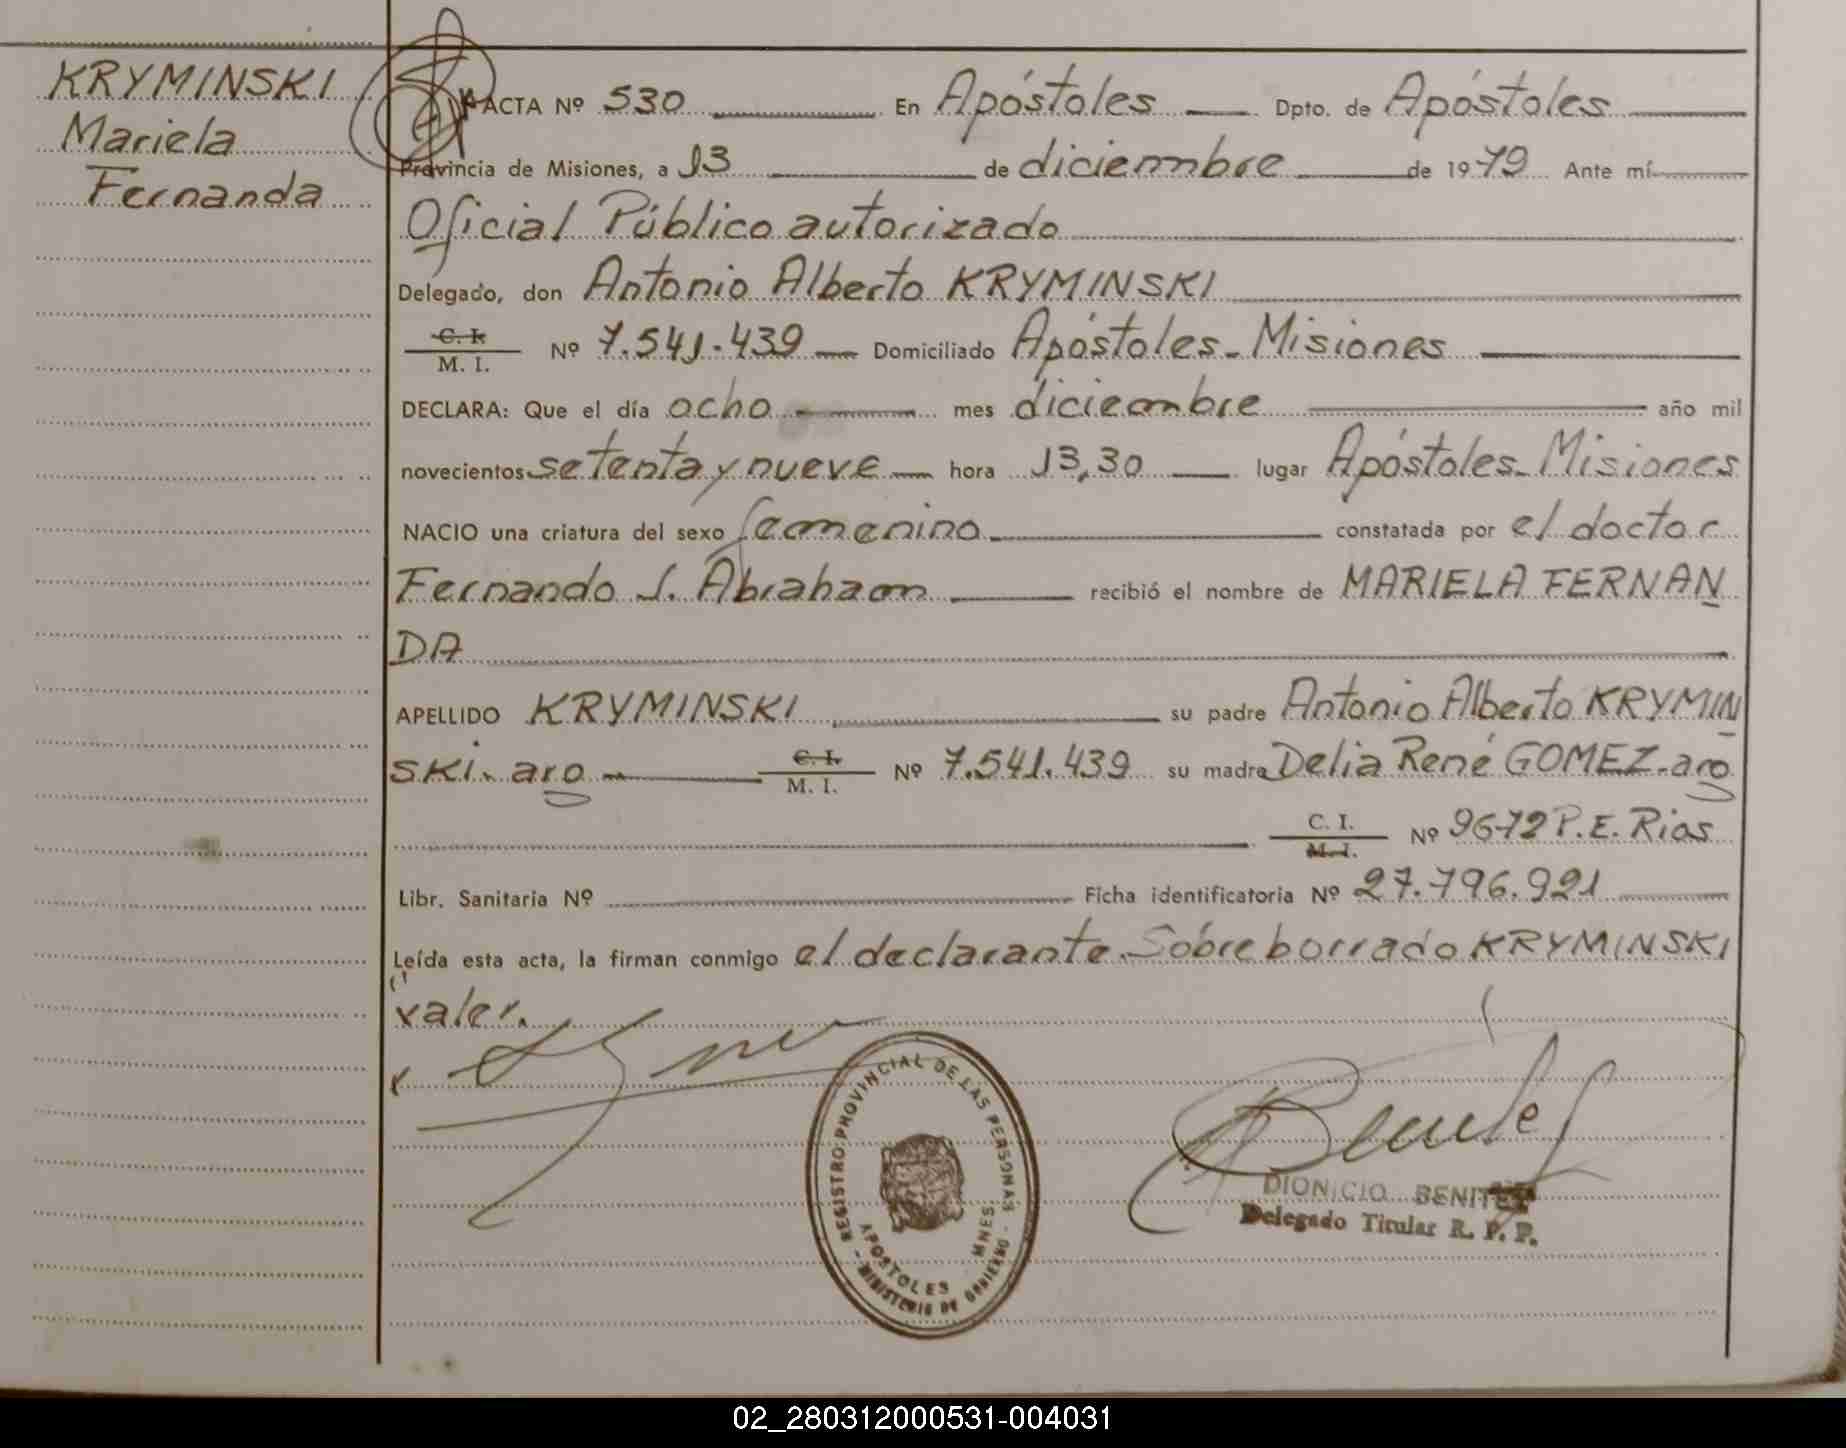 KRYMINSKI
Mariela
Fernanda
ACTA Nº 530 En Apóstoles Dpto. de Apóstoles
Provincia de Misiones, a 13 de diciembre de 1979 Ante mí
Oficial Público autorizado
Delegado, don Antonio Alberto KRYMINSKI
C. I. M. I. Nº 7.541.439 Domiciliado Apóstoles - Misiones
DECLARA: Que el día ocho mes diciembre año mil
novecientos setenta y nueve hora 13,30 lugar Apóstoles - Misiones
NACIO una criatura del sexo femenino constatada por el doctor
Fernando J. Abraham recibió el nombre de MARIELA FERNAN
DA
APELLIDO KRYMINSKI su padre Antonio Alberto KRYMIN
SKI. arg C. I. M. I. Nº 7.541.439 su madre Delia René GOMEZ - arg
C. I. M. I. Nº 9672 P. E. Rios
Libr. Sanitaria Nº Ficha identificatoria Nº 27.796.921
Leída esta acta, la firman conmigo el declarante. Sobreborrado KRYMINSKI
valer.
REGISTRO PROVINCIAL DE LAS PERSONAS
APOSTOLES MNES.
MINISTERIO DE GOBIERNO
DIONICIO BENITEZ
Delegado Titular R. P. P.
02_280312000531-004031